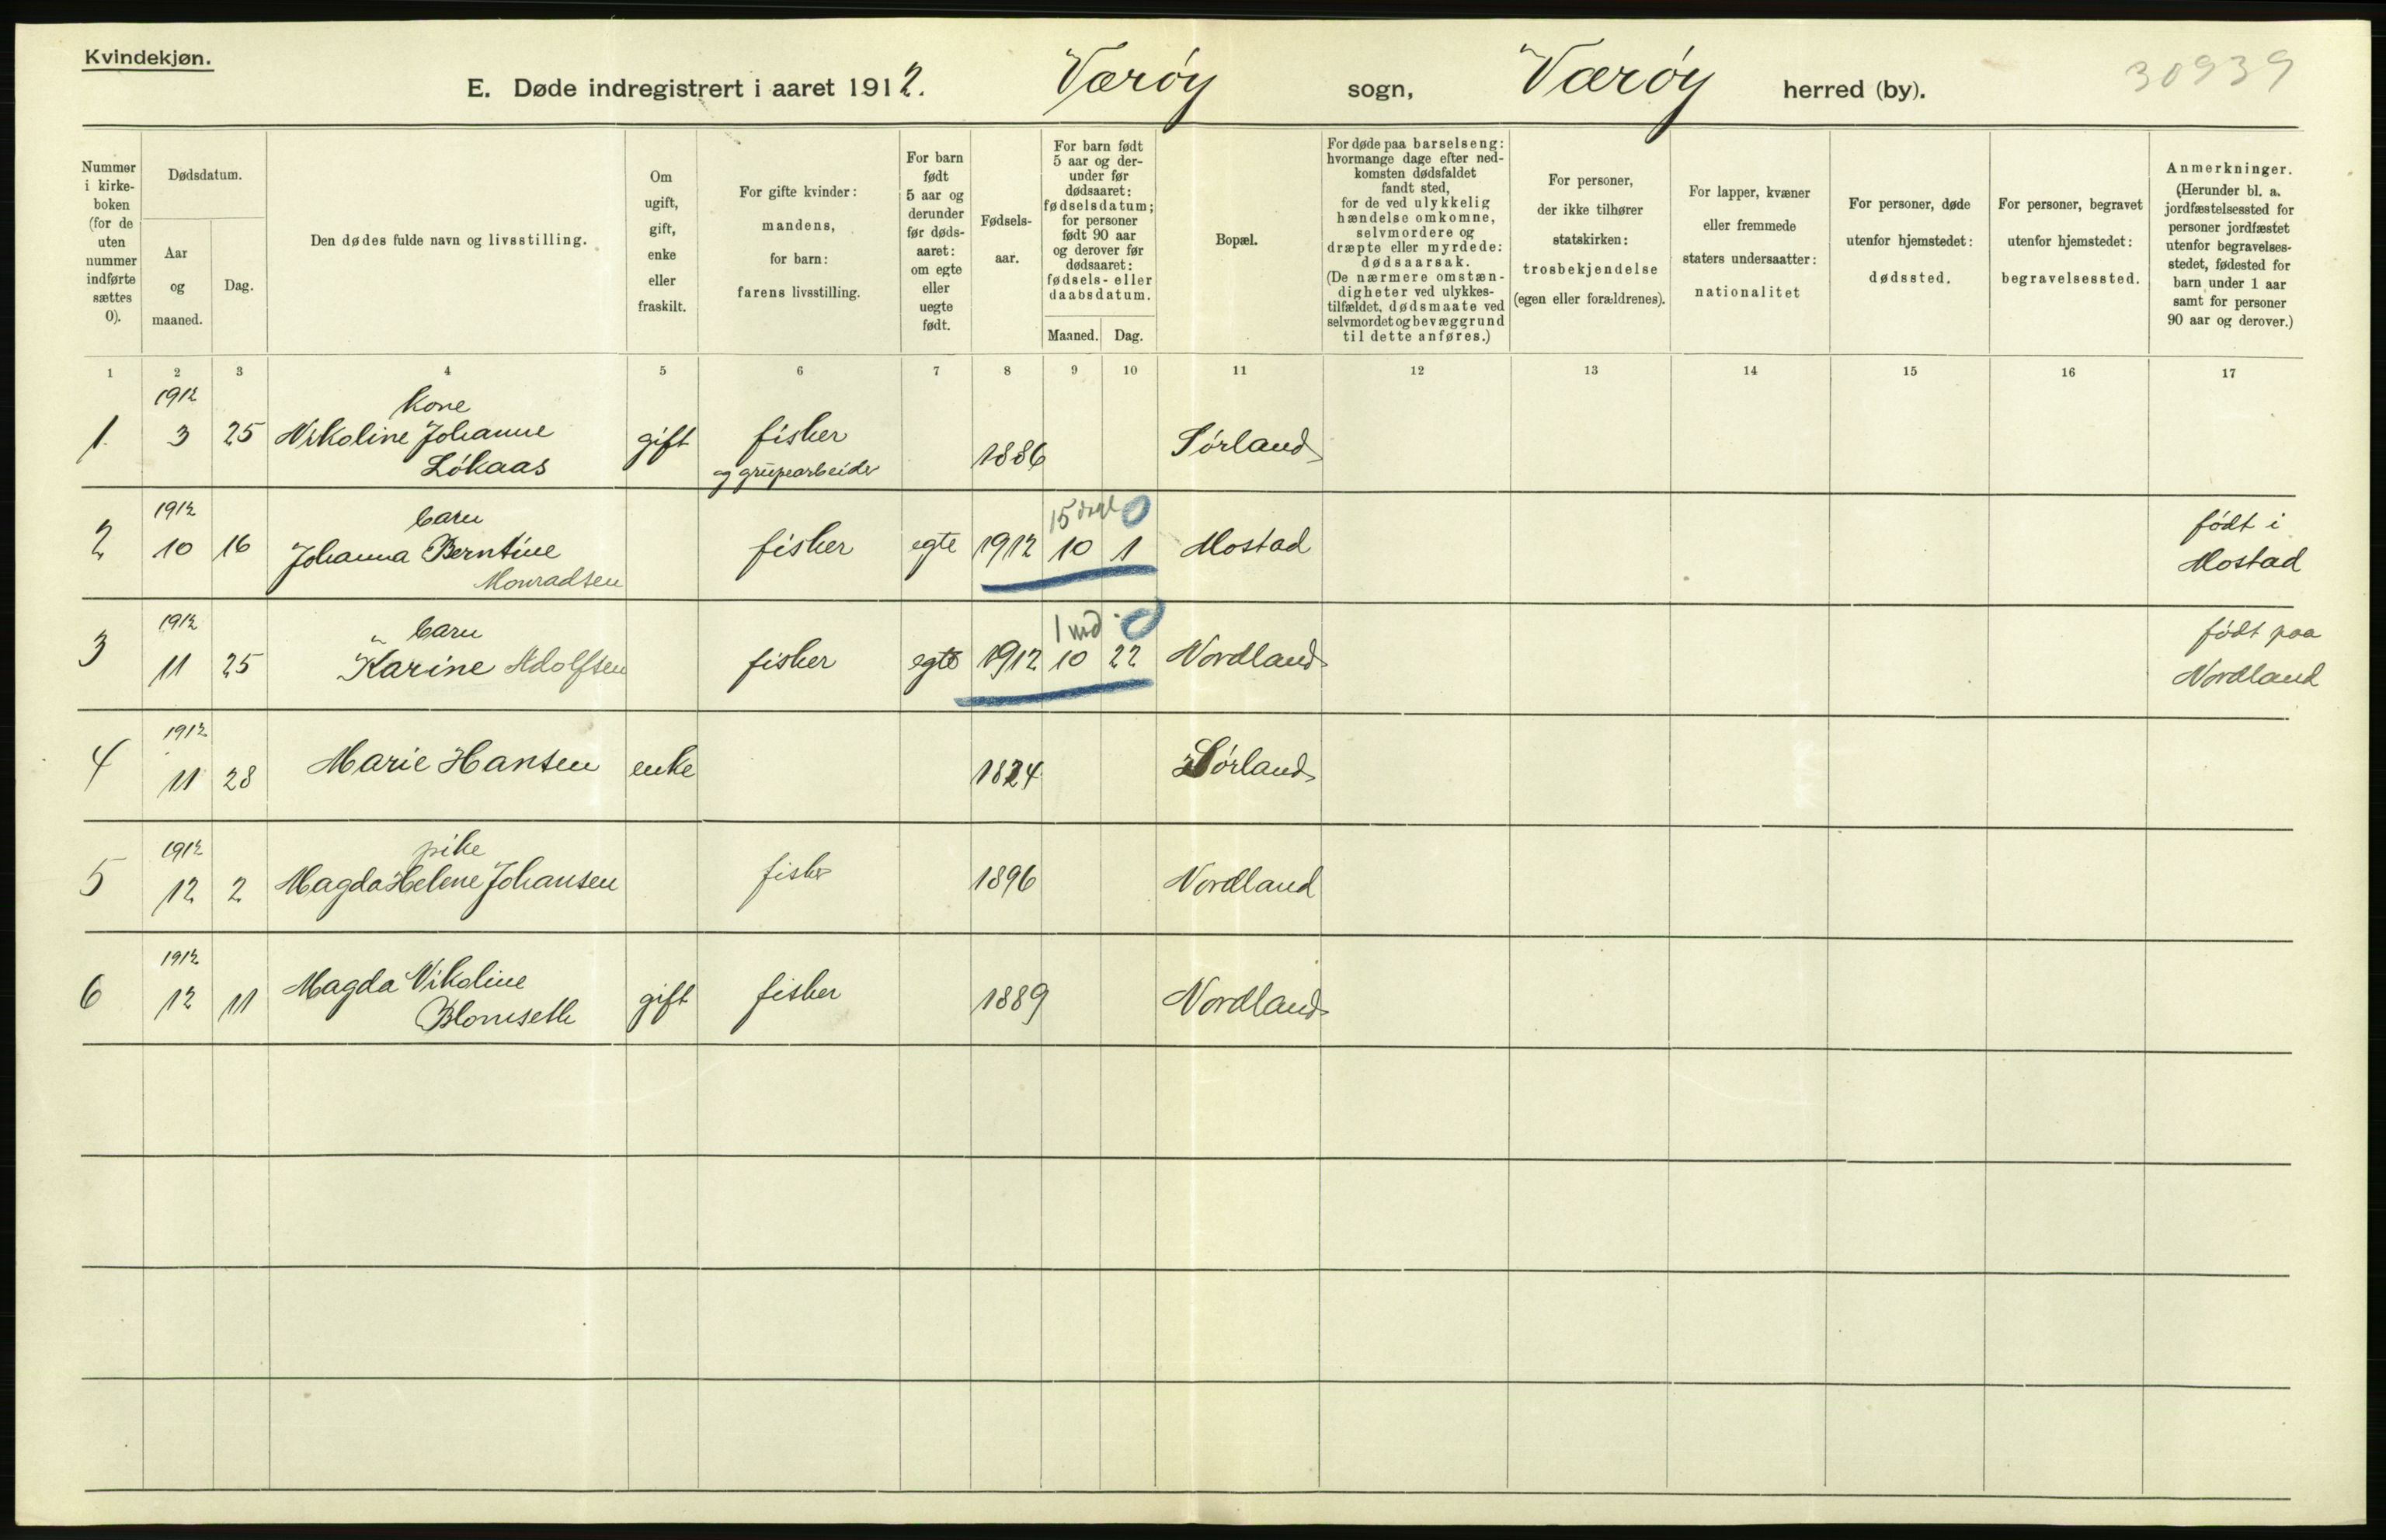 Kvindekjøn.
E. Døde indregistrert i aaret 1912. Værøy sogn, Værøy herred (by). 30939
Nummer
i kirke-
boken
(for de
uten
nummer
indførte
sættes
0).
Dødsdatum.
Aar
og
maaned.
Dag.
Den dødes fulde navn og livsstilling.
Om
ugift,
gift,
enke
eller
fraskilt.
For gifte kvinder:
mandens,
for barn:
farens livsstilling.
For barn
født
5 aar og
derunder
før døds-
aaret:
om egte
eller
uegte
født.
Fødsels-
aar.
For barn født
5 aar og der-
under før
dødsaaret:
fødselsdatum;
for personer
født 90 aar
og derover før
dødsaaret:
fødsels- eller
daabsdatum.
Maaned. Dag.
Bopæl.
For døde paa barselseng:
hvormange dage efter ned-
komsten dødsfaldet
fandt sted,
for de ved ulykkelig
hændelse omkomne,
selvmordere og
dræpte eller myrdede:
dødsaarsak.
(De nærmere omstæn-
digheter ved ulykkes-
tilfældet, dødsmaate ved
selvmordet og bevæggrund
til dette anføres.)
For personer,
der ikke tilhører
statskirken:
trosbekjendelse
(egen eller forældrenes).
For lapper, kvæner
eller fremmede
staters undersaatter:
nationalitet
For personer, døde
utenfor hjemstedet:
dødssted.
For personer, begravet
utenfor hjemstedet:
begravelsessted.
Anmerkninger.
(Herunder bl. a.
jordfæstelsessted for
personer jordfæstet
utenfor begravelses-
stedet, fødested for
barn under 1 aar
samt for personer
90 aar og derover.)
1 2 3 4 5 6 7 8 9 10 11 12 13 14 15 16 17
1912 Kone
1. 3 25 Nikoline Johanne gift fisker 1886 Sørland
Løkaas og grupearbeider
1912 barn 15 dage 0 født i
2 10 16 Johanna Berntine fisker egte 1912 10 1 Mostad Mostad
Monradsen
1912 " barn 1 md 0 født paa
3 11 25 Karine Adolfsen fisker egte 1912 10 22 Nordland Nordland
1912
4 11 28 Marie Hansen enke 1824 Sørland
1912 pike
5 12 2 Magda Helene Johansen fisker 1896 Nordland
1912
6 12 11 Magda Nikoline gift fisker 1889 Nordland
Blomseth